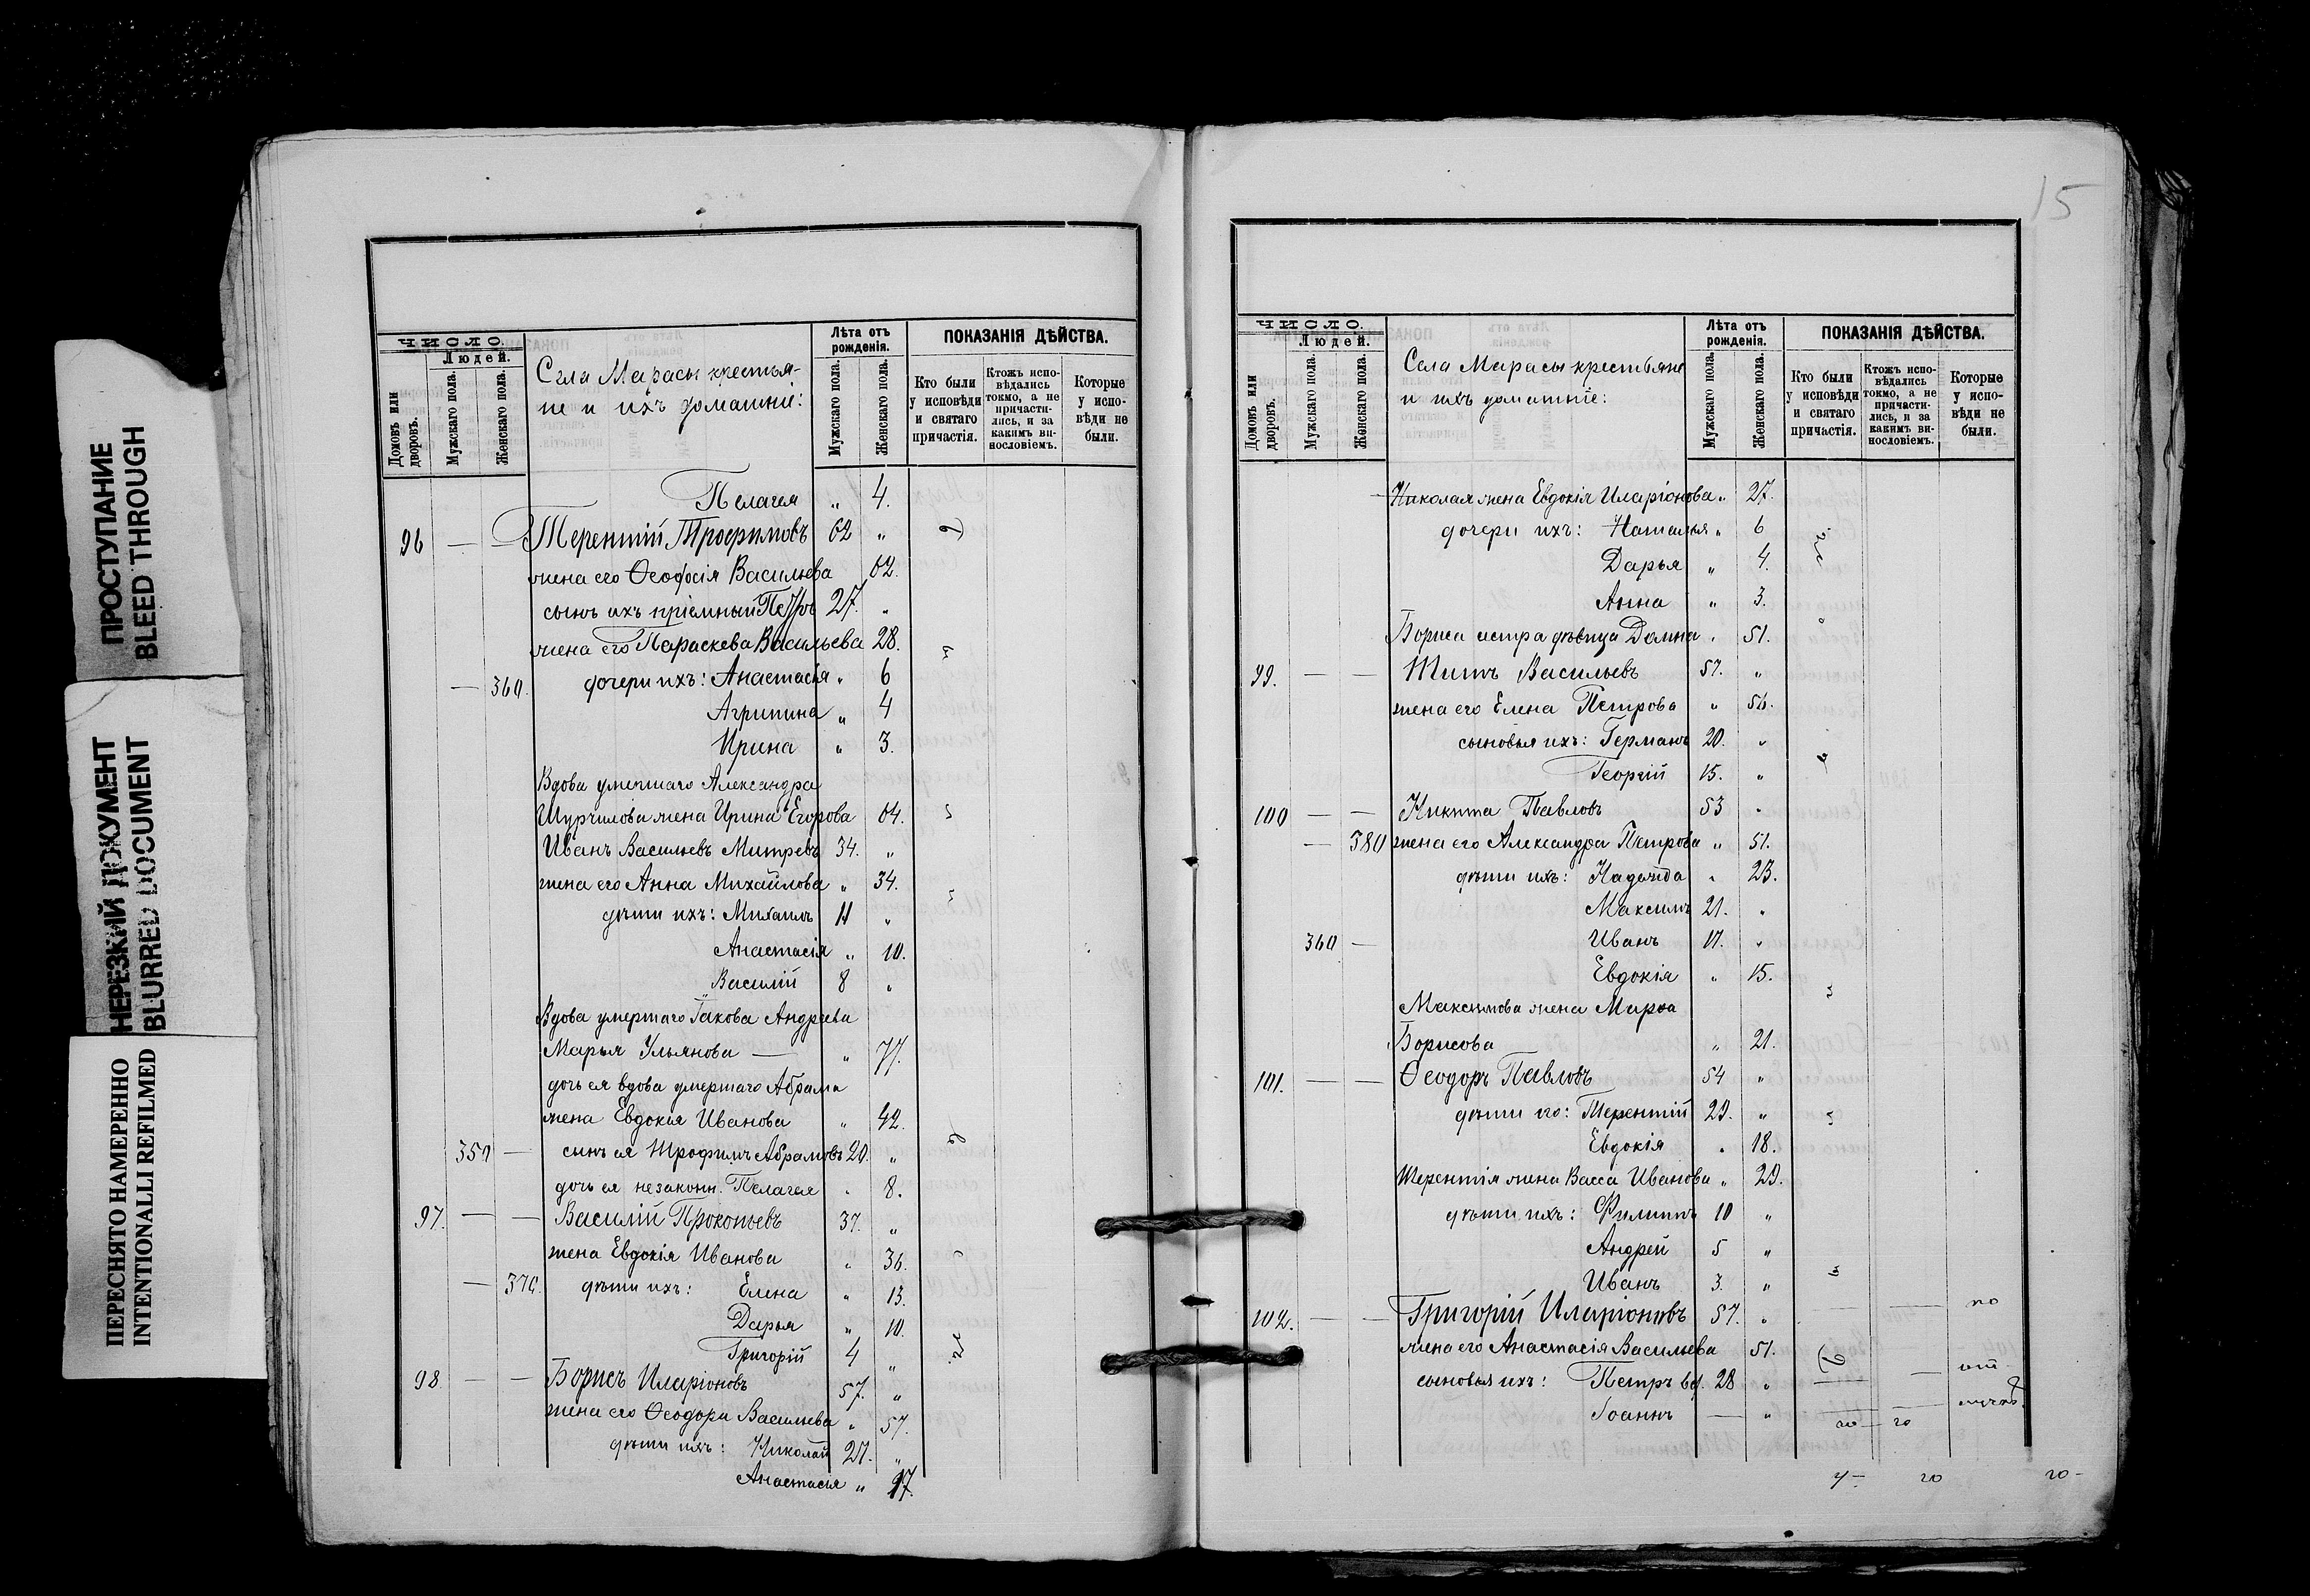 ПРОСТУПАНИЕ
BLEED THROUGH
НЕРЕЗКИЙ ДОКУМЕНТ
BLURRED DOCUMENT
ПЕРЕСНЯТО НАМЕРЕННО
INTENTIONALLI REFILMED
ЧИСЛО.
Людей.
Домовъ или дворовъ.
Мужскаго пола.
Женскаго пола.
Села Марасы крестья-
не и ихъ домашніе:
Лѣта отъ рожденія.
Мужскаго пола.
Женскаго пола.
ПОКАЗАНІЯ ДѢЙСТВА.
Кто были у исповѣди и святаго причастія.
Ктожъ испо-вѣдались токмо, а не причасти-лись, и за какимъ ви-нословіемъ.
Которые у испо-вѣди не были.
Пелагея „ 4.
96 — — Терентій Трофимовъ 62 „
жена его Ѳеодосія Васильева 62.
сынъ ихъ пріемный Петръ 27. „
жена его Параскева Васильева 28.
— 360. дочери ихъ: Анастасія „ 6
Агрипина „ 4
Ирина „ 3.
Вдова умершаго Александра
жена Ирина Егорова 64.
Иванъ Васильевъ 34. „
жена его Анна Михайлова „ 34.
дѣти ихъ: Михаилъ 11 „
Анастасія „ 10.
Василій 8 „
Вдова умершаго Іакова Андреева
Марья Ульянова — „ 77.
дочь ея вдова умершаго Абрама
жена Евдокія Иванова „ 42.
350 — сынъ ея Трофимъ Абрамовъ 20. „
дочь ея незаконн. Пелагея „ 8.
97. — — Василій Прокопьевъ 37. „
жена Евдокія Иванова „ 36.
— 370. дѣти ихъ: Елена „ 13.
Дарья „ 10.
Григорій 4 „
98 — — Борисъ Иларіоновъ 57. „
жена его Ѳеодора Васильева „ 57.
дѣти ихъ: Николай 27. „
Анастасія „ 17.
15
ЧИСЛО.
Людей.
Домовъ или дворовъ.
Мужскаго пола.
Женскаго пола.
Села Марасы крестьяне
и ихъ домашніе:
Лѣта отъ рожденія.
Мужскаго пола.
Женскаго пола.
ПОКАЗАНІЯ ДѢЙСТВА.
Кто были у исповѣди и святаго причастія.
Ктожъ испо-вѣдались токмо, а не причасти-лись, и за какимъ ви-нословіемъ.
Которые у испо-вѣди не были.
Николая жена Евдокія Иларіонова „ 27.
дочери ихъ: Наталья „ 6
Дарья „ 4.
Анна „ 3.
Бориса сестра дѣвица Домна „ 51.
99. — — Титъ Васильевъ 57. „
жена его Елена Петрова „ 56.
сыновья ихъ: Германъ 20. „
Георгій 15. „
100 — — Никита Павловъ 53 „
— 380 жена его Александра Петрова „ 51.
дѣти ихъ: Надежда „ 23.
Максимъ 21. „
360 — Иванъ 17. „
Евдокія „ 15.
Максимова жена Марѳа
Борисова „ 21.
101. — — Ѳеодоръ Павловъ 54 „
дѣти его: Терентій 29. „
Евдокія „ 18.
Терентія жена Васса Иванова „ 29.
дѣти ихъ: Филиппъ 10 „
Андрей 5 „
Иванъ 3. „
102. — — Григорій Иларіоновъ 57. „ — по
жена его Анастасія Васильева 51.
сыновья ихъ: Петръ вд. 28 „
Іоаннъ — „